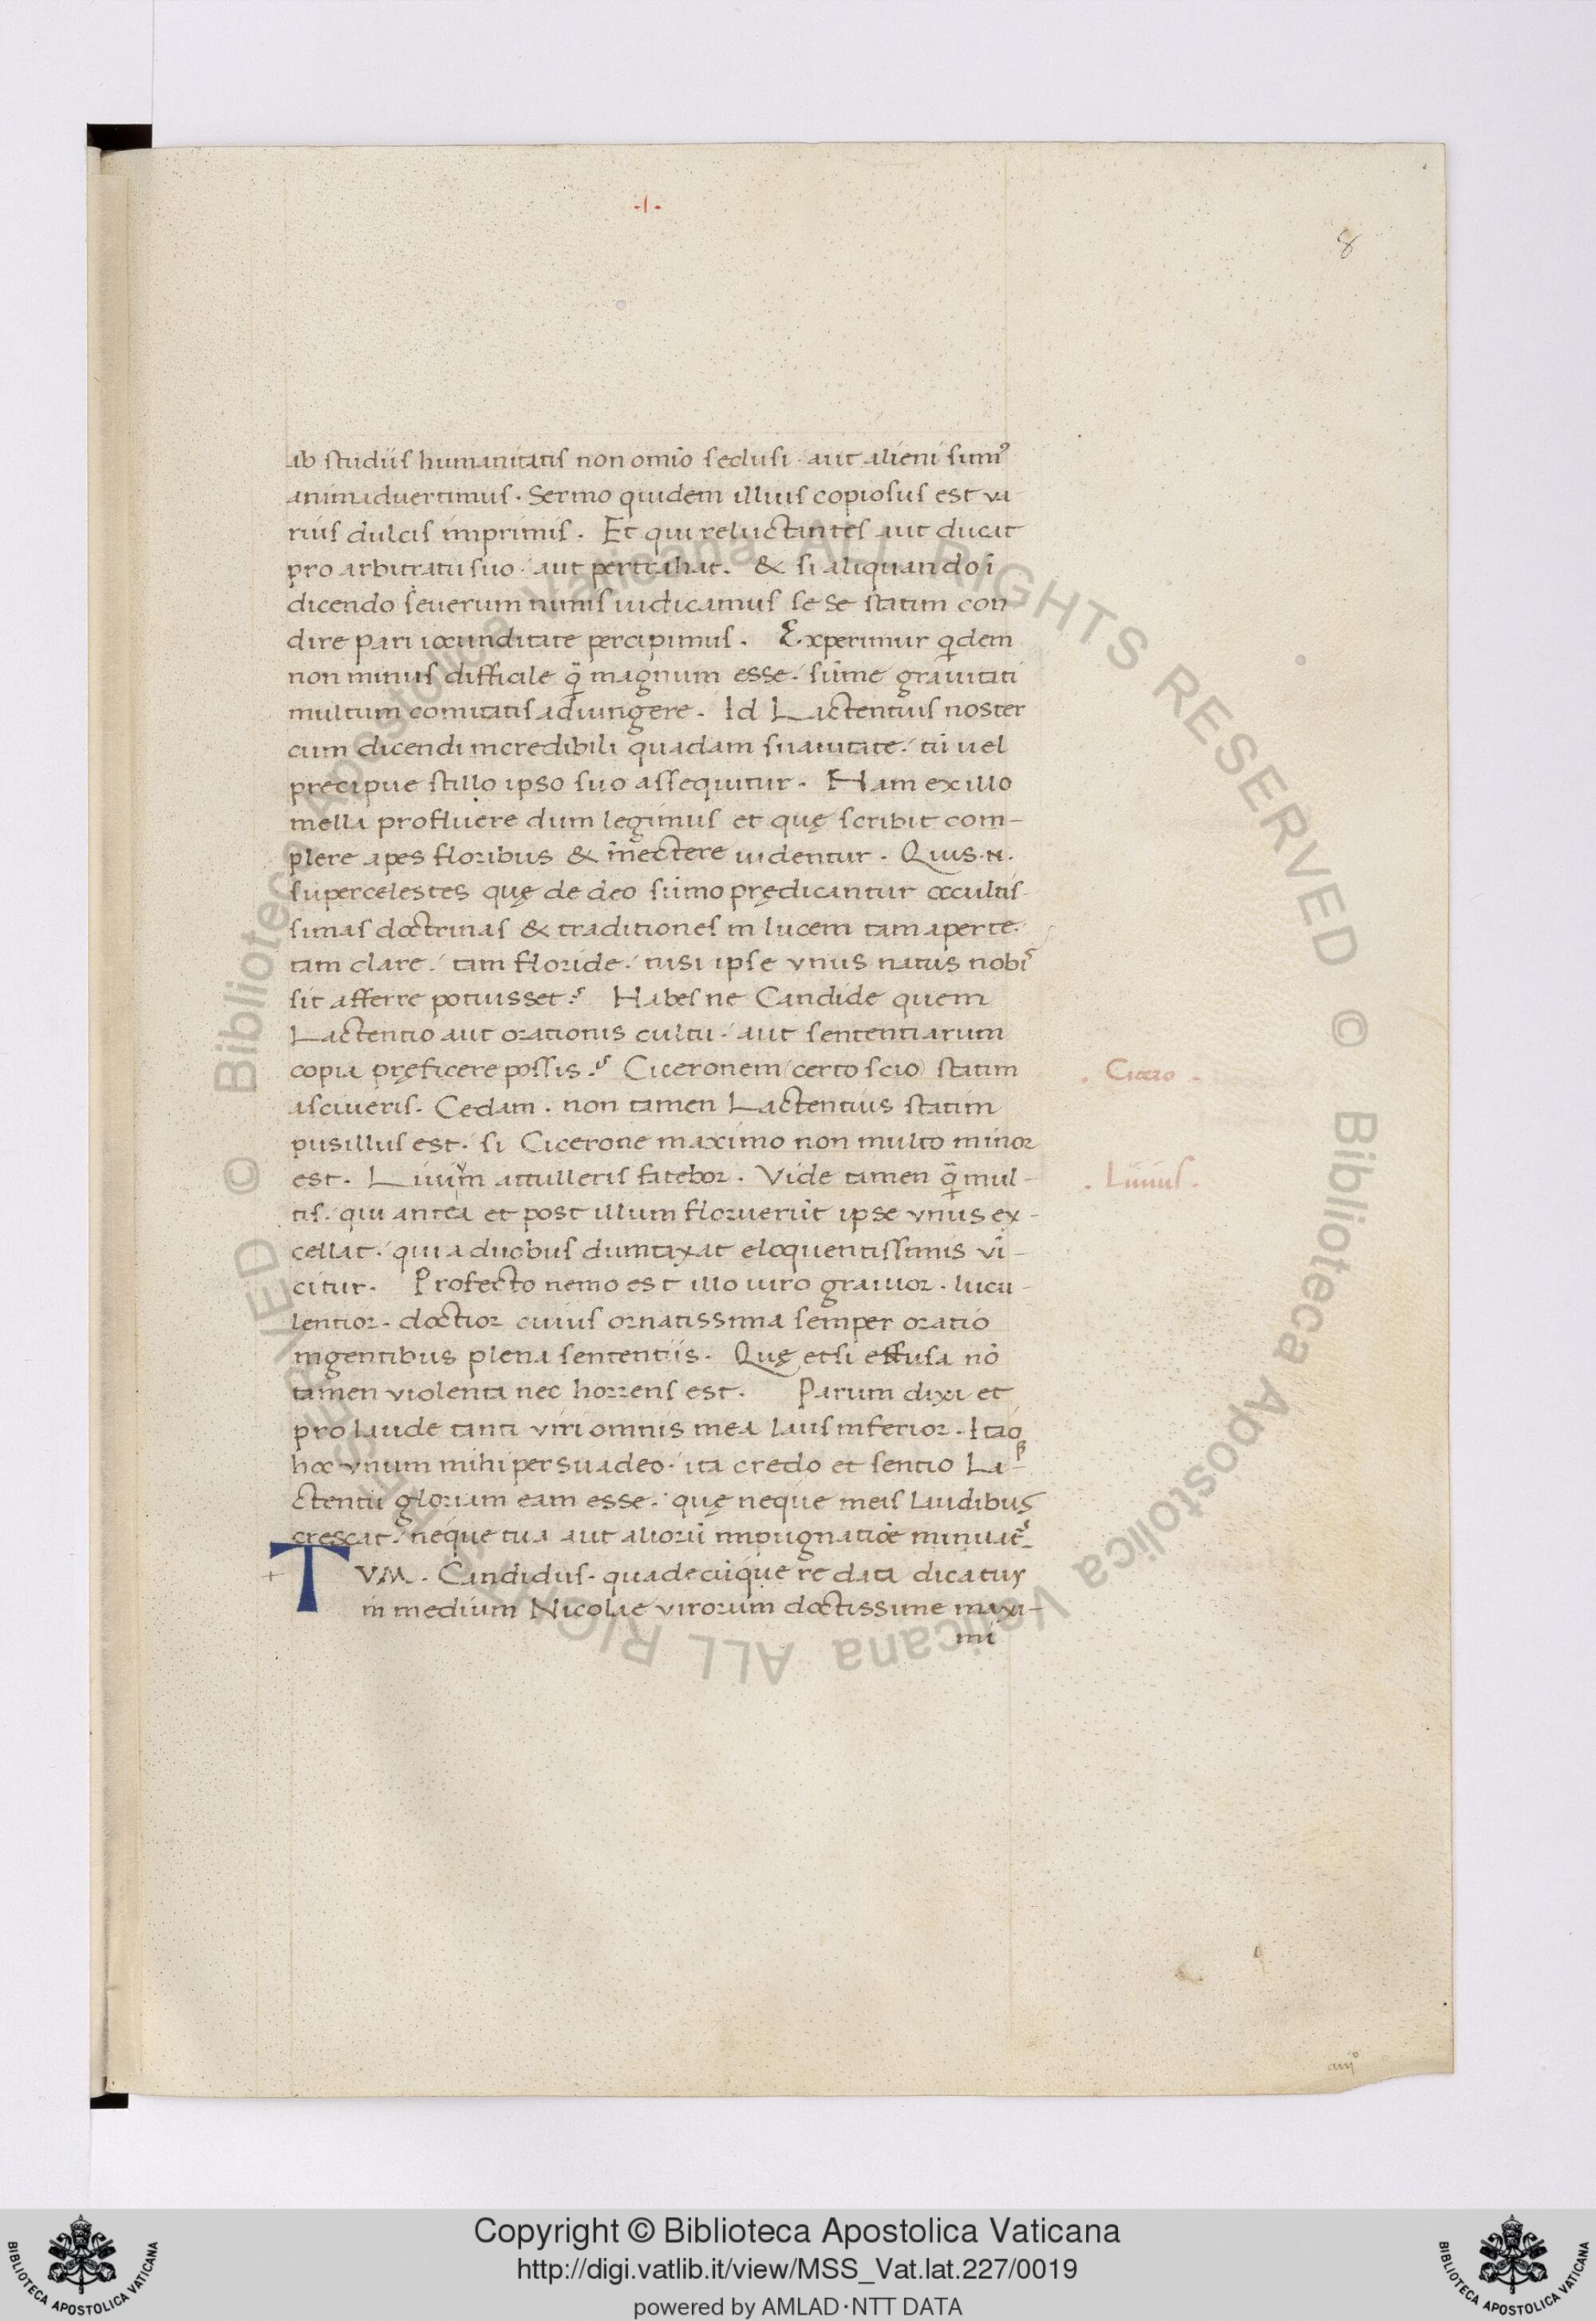 ·I·
8
ab studiis humanitatis non omīo seclusi · aut alieni sumꝰ
animaduertimus · Sermo quidem illius copiosus est va
rius dulcis imprimis · Et qui reluctantes aut ducat
pro arbitratu suo · aut pertrahat · & si aliquando ī
dicendo seuerum nimis iudicamus se se statim con
dire pari iocunditate percipimus · Experimur qͥdem
non minus difficile q̄ magnum esse · sūme grauitati
multum comitatis adiungere · Id Lactentius noster
cum dicendi incredibili quadam suauitate · tū uel
precipue stillo ipso suo assequitur · Nam ex illo
mella profluere dum legimus et quę scribit com-
plere apes floribus & innectere uidentur · Quis · n ·
supercelestes quę de deo sūmo prędicantur occultis-
simas doctrinas & traditiones in lucem tam aperte ·
tam clare · tam floride · nisi ipse vnus natus nobis
sit afferre potuisset ? Habes ne Candide quem
Lactentio aut orationis cultu · aut sententiarum
copia pręficere possis ? Ciceronem (certo scio) statim
· Cicero ·
asciueris · Cedam · non tamen Lactentius statim
pusillus est · si Cicerone maximo non multo minor
est · Liuium attulleris fatebor · Vide tamen q̄ mul-
· Liuius ·
tis · qui antea et post illum floruerūt ipse vnus ex-
cellat · qui a duobus dumtaxat eloquentissimis vī-
citur · Profecto nemo est illo uiro grauior · lucu-
lentior · doctior cuius ornatissima semper oratio
ingentibus plena sententiis · Quę etsi effusa nō
tamen violenta nec horrens est · Parum dixi et
pro laude tanti viri omnis mea laus inferior · Itaq
hoc vnum mihi persuadeo · ita credo et sentio La-
ctentii gloriam eam esse · quę neque meis laudibus
crescat · neque tua aut aliorū impugnatiōe minuat᷑ ·
TVM · Candidus · quadecūque re data dicatur
in medium Nicolae virorum doctissime maxi-
mi
Copyright © Biblioteca Apostolica Vaticana
http://digi.vatlib.it/view/MSS_Vat.lat.227/0019
powered by AMLAD·NTT DATA
BIBLIOTECA APOSTOLICA VATICANA
BIBLIOTECA APOSTOLICA VATICANA
© Biblioteca Apostolica Vaticana ALL RIGHTS RESERVED © Biblioteca Apostolica Vaticana ALL RIGHTS RESERVED